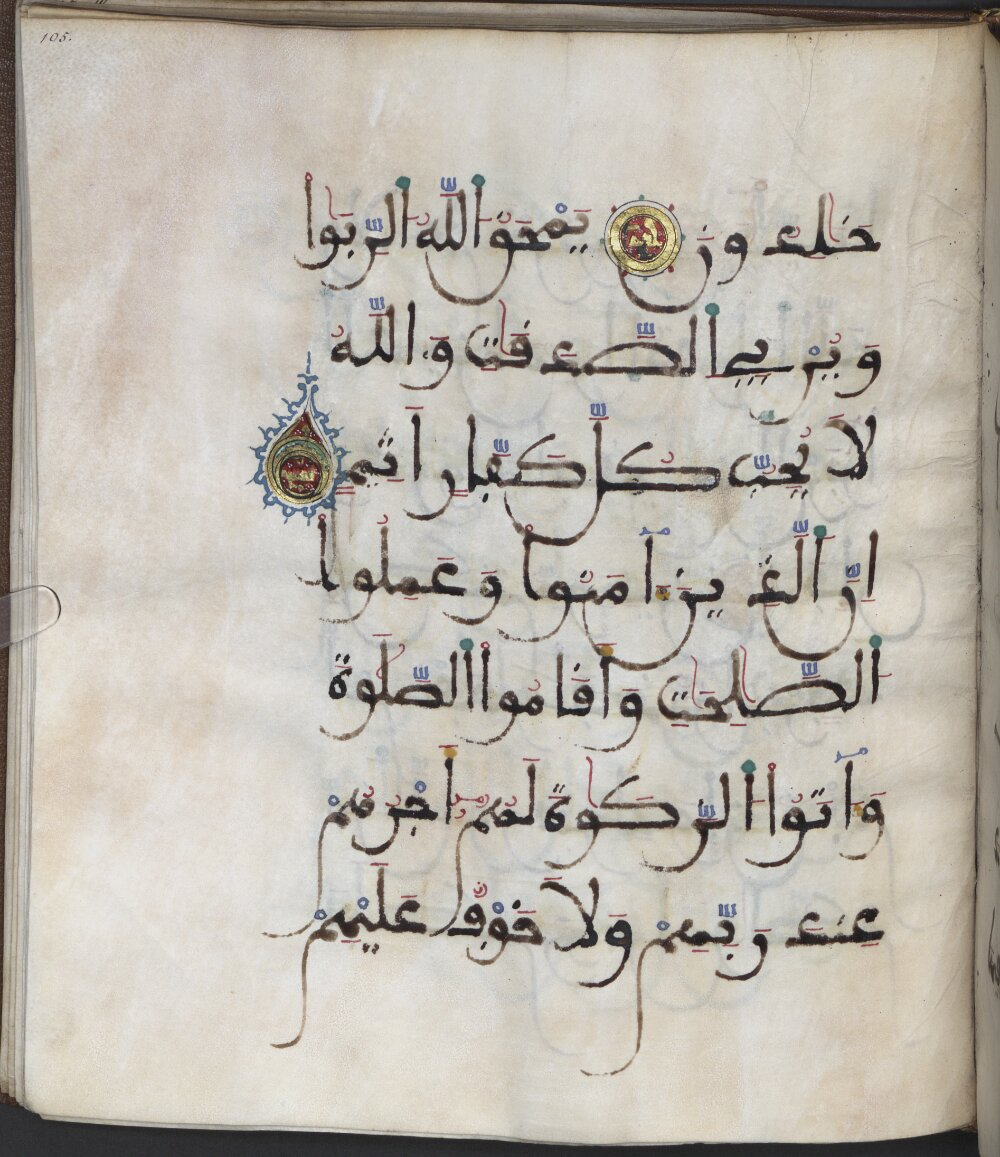 105.
خَٰلِدُونَ يَمْحَقُ اللَّهُ الرِّبَوٰا
وَيُرْبِي الصَّدَقَٰتِ وَاللَّهُ
لَا يُحِبُّ كُلَّ كَفَّارٍ اَثِيمٍ
اِنَّ الَّذِينَ ءَامَنُوا وَعَمِلُوا
الصَّٰلِحَٰتِ وَأَقَامُوا الصَّلَوٰةَ
وَءَاتَوُا الزَّكَوٰةَ لَهُمُ أَجْرُهُمْ
عِندَ رَبِّهِمْ وَلَا خَوْفٌ عَلَيْهِمْ